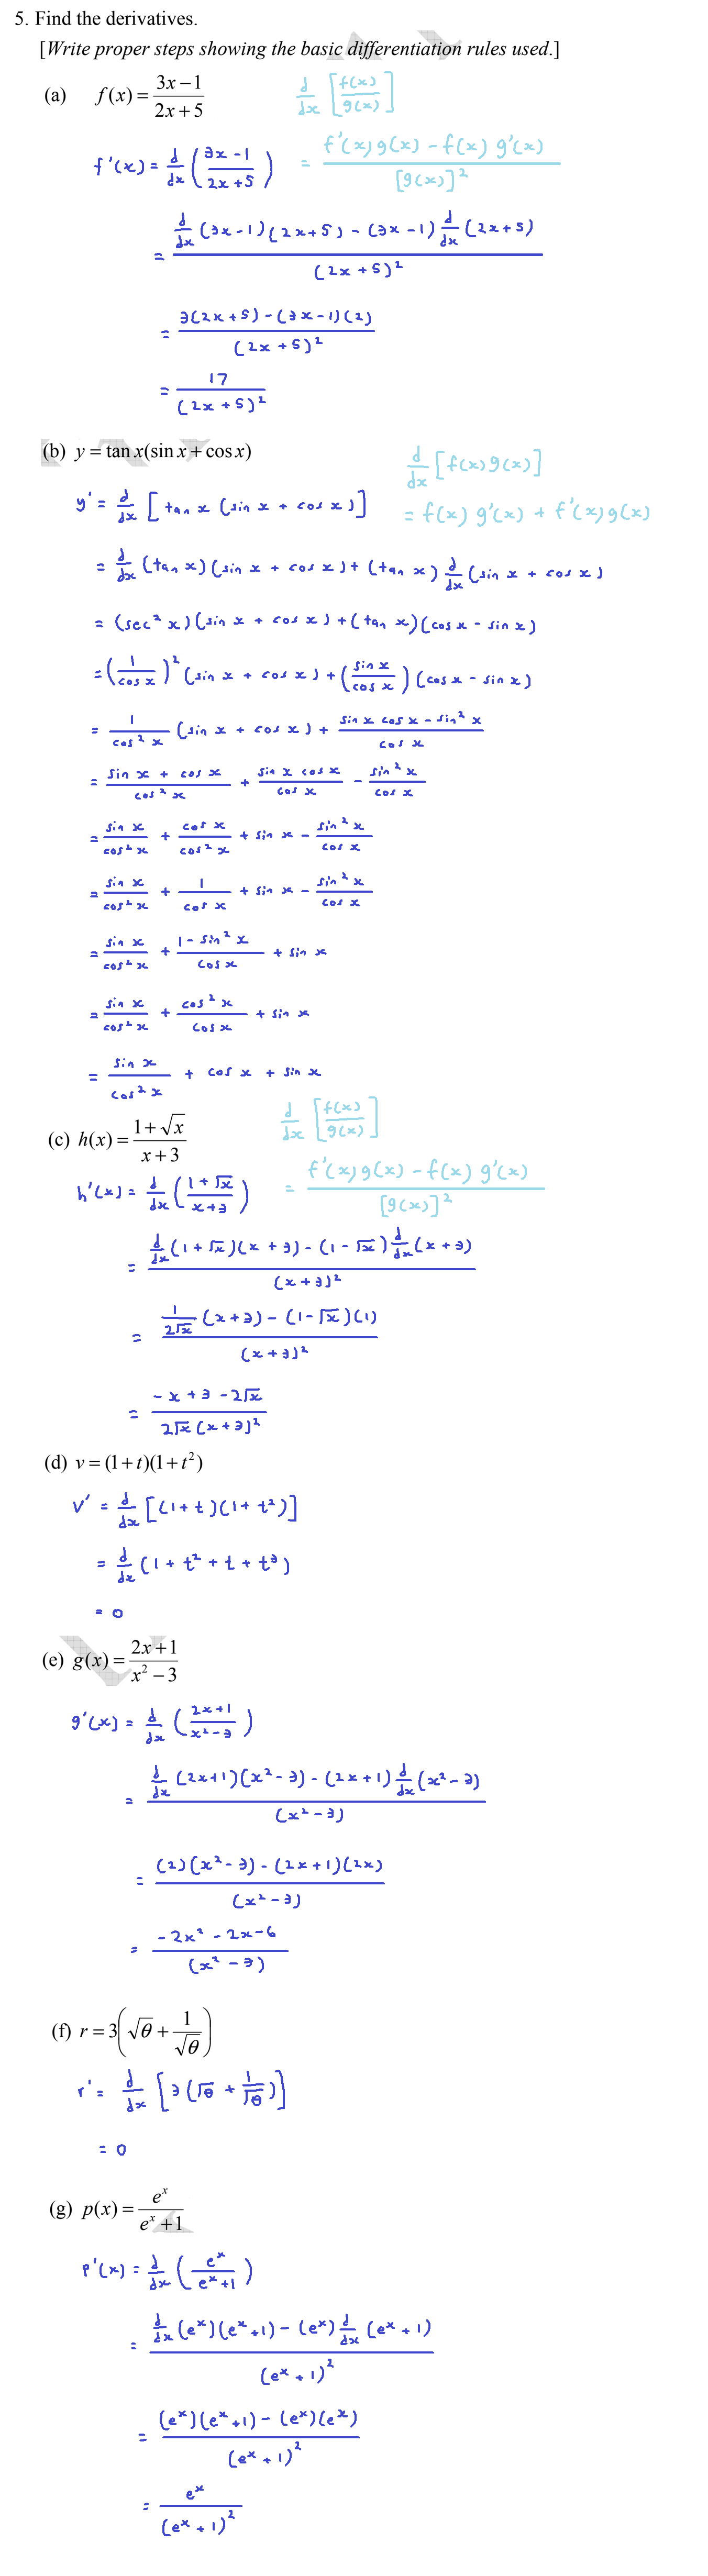 5. Find the derivatives.
[Write proper steps showing the basic differentiation rules used.]
(a) f(x) = (3x−1)/(2x+5)
d/dx [f(x)/g(x)]
= (f'(x)g(x) − f(x) g'(x))/[g(x)]²
f'(x) = d/dx ((3x−1)/(2x+5))
= (d/dx (3x−1)(2x+5) − (3x−1) d/dx (2x+5))/(2x+5)²
= (3(2x+5) − (3x−1)(2))/(2x+5)²
= 17/(2x+5)²
(b) y = tan x(sin x + cos x)
d/dx [f(x)g(x)]
= f(x) g'(x) + f'(x)g(x)
y' = d/dx [tan x (sin x + cos x)]
= d/dx (tan x)(sin x + cos x) + (tan x) d/dx (sin x + cos x)
= (sec² x)(sin x + cos x) + (tan x)(cos x − sin x)
= (1/cos x)² (sin x + cos x) + (sin x/cos x)(cos x − sin x)
= 1/cos² x (sin x + cos x) + (sin x cos x − sin² x)/cos x
= (sin x + cos x)/cos² x + (sin x cos x)/cos x − sin² x/cos x
= sin x/cos² x + cos x/cos² x + sin x − sin² x/cos x
= sin x/cos² x + 1/cos x + sin x − sin² x/cos x
= sin x/cos² x + (1 − sin² x)/cos x + sin x
= sin x/cos² x + cos² x/cos x + sin x
= sin x/cos² x + cos x + sin x
(c) h(x) = (1+√x)/(x+3)
d/dx [f(x)/g(x)]
= (f'(x)g(x) − f(x) g'(x))/[g(x)]²
h'(x) = d/dx ((1+√x)/(x+3))
= (d/dx (1+√x)(x+3) − (1−√x) d/dx (x+3))/(x+3)²
= (1/2√x (x+3) − (1−√x)(1))/(x+3)²
= (−x + 3 − 2√x)/(2√x (x+3)²)
(d) v = (1+t)(1+t²)
v' = d/dx [(1+t)(1+t²)]
= d/dx (1 + t² + t + t³)
= 0
(e) g(x) = (2x+1)/(x²−3)
g'(x) = d/dx ((2x+1)/(x²−3))
= (d/dx (2x+1)(x²−3) − (2x+1) d/dx (x²−3))/(x²−3)
= ((2)(x²−3) − (2x+1)(2x))/(x²−3)
= (−2x² − 2x − 6)/(x²−3)
(f) r = 3(√θ + 1/√θ)
r' = d/dx [3(√θ + 1/√θ)]
= 0
(g) p(x) = eˣ/(eˣ+1)
p'(x) = d/dx (eˣ/(eˣ+1))
= (d/dx (eˣ)(eˣ+1) − (eˣ) d/dx (eˣ+1))/(eˣ+1)²
= ((eˣ)(eˣ+1) − (eˣ)(eˣ))/(eˣ+1)²
= eˣ/(eˣ+1)²